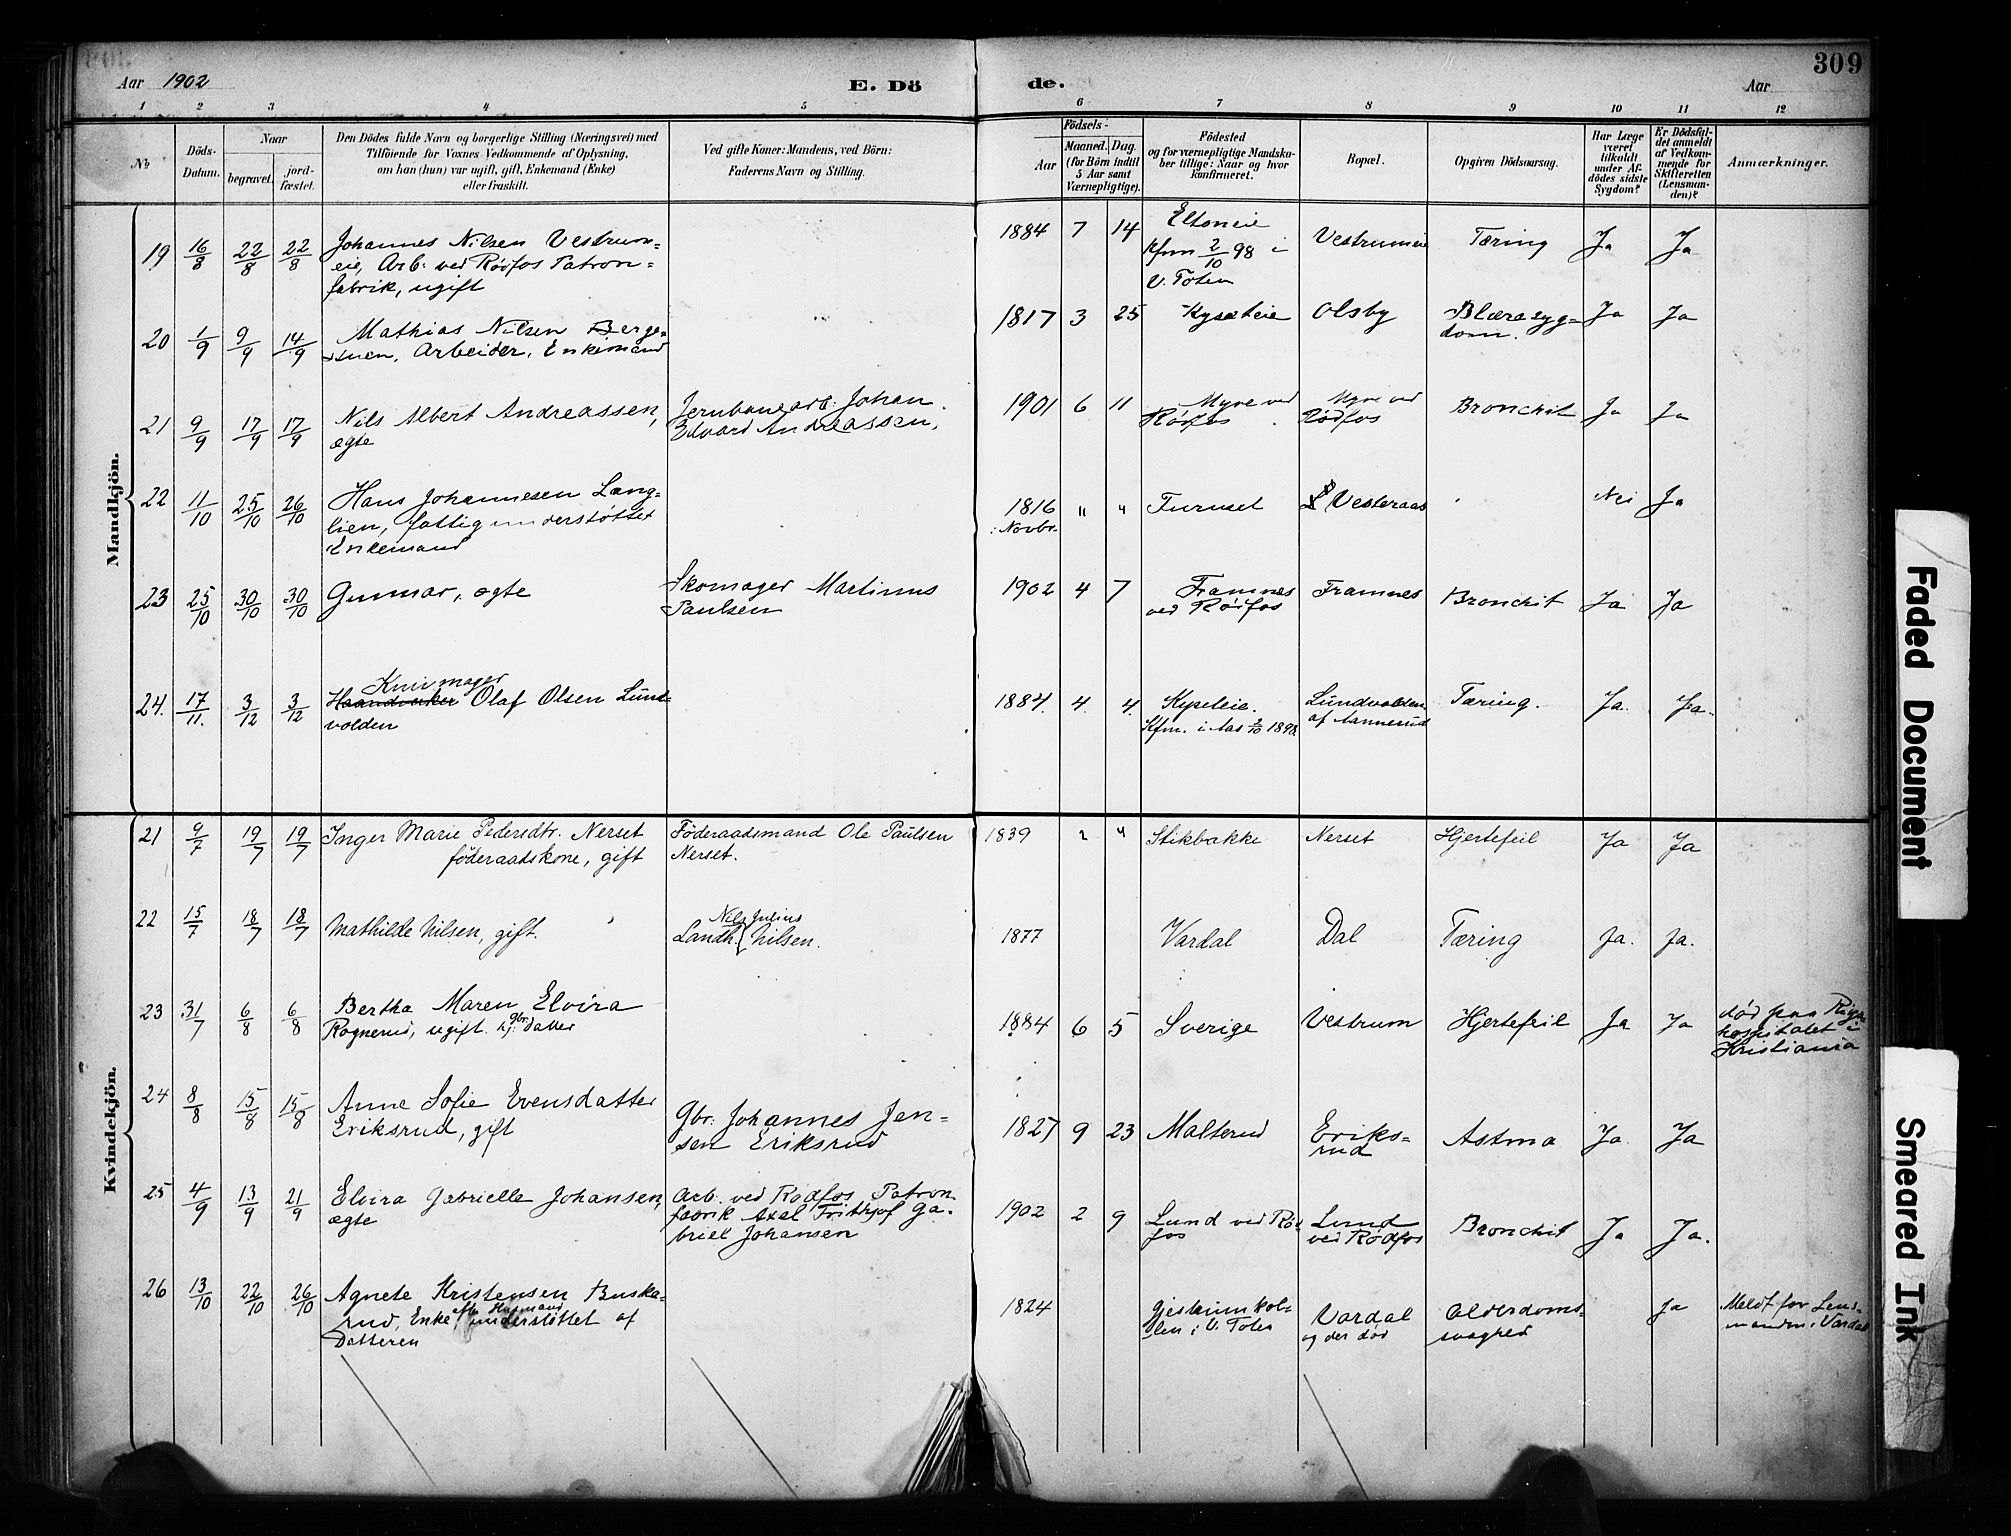 Aar 1902
E. Dö
de.
Aar
309
1 2 3 4 5 6 7 8 9 10 11 12
No
Döds-
Datum.
Naar
begravet.
jord-
fæstet.
Den Dödes fulde Navn og borgerlige Stilling (Næringsvei) med
Tilföiende for Voxnes Vedkommende af Oplysning,
om han (hun) var ugift, gift, Enkemand (Enke)
eller fraskilt.
Ved gifte Koner: Mandens, ved Börn:
Faderens Navn og Stilling.
Födsels-
Aar
Maaned. Dag.
(for Börn indtil
5 Aar samt
Værnepligtige).
Födested
og for værnepligtige Mandska-
ber tillige: Naar og hvor
konfirmeret.
Bopæl.
Opgiven Dödsaarsag.
Har Læge
været
tilkaldt
under Af-
dödes sidste
Sygdom?
Er Dödsfal-
det anmeldt
af Vedkom-
mende for
Skifteretten
(Lensman-
den)?
Anmærkninger.
Mandkjön.
19 16/8 22/8 22/8 Johannes Nilsen Vestrum-
eie, Arb. ved Rødfos Patron-
fabrik, ugift
1884 7 14 Eltoneie
Kfm 2/10 98 i
V. Toten
Vestrumeie Tæring Ja Ja
20 1/9 9/9 14/9 Mathias Nilsen Berge-
stuen, Arbeider, Enkemand
1817 3 25 Kyseteie Olsby Blæresyg-
dom. Ja Ja
21 9/9 17/9 17/9 Nils Albert Andreassen,
ægte
Jernbanearb. Johan
Edvard Andreassen.
1901 6 11 Myre ved
Rødfos
Myre ved
Rødfos
Bronchit Ja Ja
22 11/10 25/10 26/10 Hans Johannesen Lang-
lien, fattigunderstøttet
Enkemand
1816 " "
Novbr.
Furuset Vesteraas Nei Ja
23 25/10 30/10 30/10 Gunnar, ægte
Skomager Martinus
Paulsen
1902 4 7 Framnes
ved Rødfos
Framnes Bronchit Ja Ja
24. 17/11. 3/12 3/12 Knivmager
Haandverker Olaf Olsen Lund-
volden
1884 4 4. Kyseteie.
Kfm. i Aas 2/10 1898.
Lundvolden
af Aannerud
Tæring. Ja. Ja.
Kvindekjön.
21 9/7 19/7 19/7 Inger Marie Pedersdtr. Nerset
föderaadskone, gift
Föderaadsmand Ole Paulsen
Nerset.
1839 " " Stikbakke Nerset Hjertefeil Ja Ja
22 15/7 18/7 18/7 Mathilde Nilsen, gift.
Nils Julius
Landh. Nilsen.
1877 Vardal Dal Tæring Ja. Ja.
23 31/7 6/8 6/8 Bertha Maren Elvira
Rognerud, ugift. gbr. datter
1884 6 5 Sverige Vestrum Hjertefeil Ja Ja
død paa Rigs-
hospitalet i
Kristiania
24 8/8 15/8 15/8 Anne Sofie Evensdatter
Eriksrud, gift
Gbr. Johannes Jen-
sen Eriksrud
1827 9 23 Malterud Eriks-
rud
Astma Ja Ja
25 4/9 13/9 21/9 Elvira Gabrielle Johansen,
ægte
Arb. ved Rødfos Patron-
fabrik Axel Frithjof Ga-
briel Johansen
1902 2 9 Lund ved Rød-
fos
Lund
ved Rødfos
Bronchit Ja Ja.
26 13/10 22/10 26/10 Agnete Kristensen Buska-
rud, Enke efter Husmand, understöttet af
Datteren
1824
i V. Toten
Vardal
og der død
Alderdoms-
svaghed
Ja
Meldt for Lens-
manden i Vardal
Faded Document
Smeared Ink